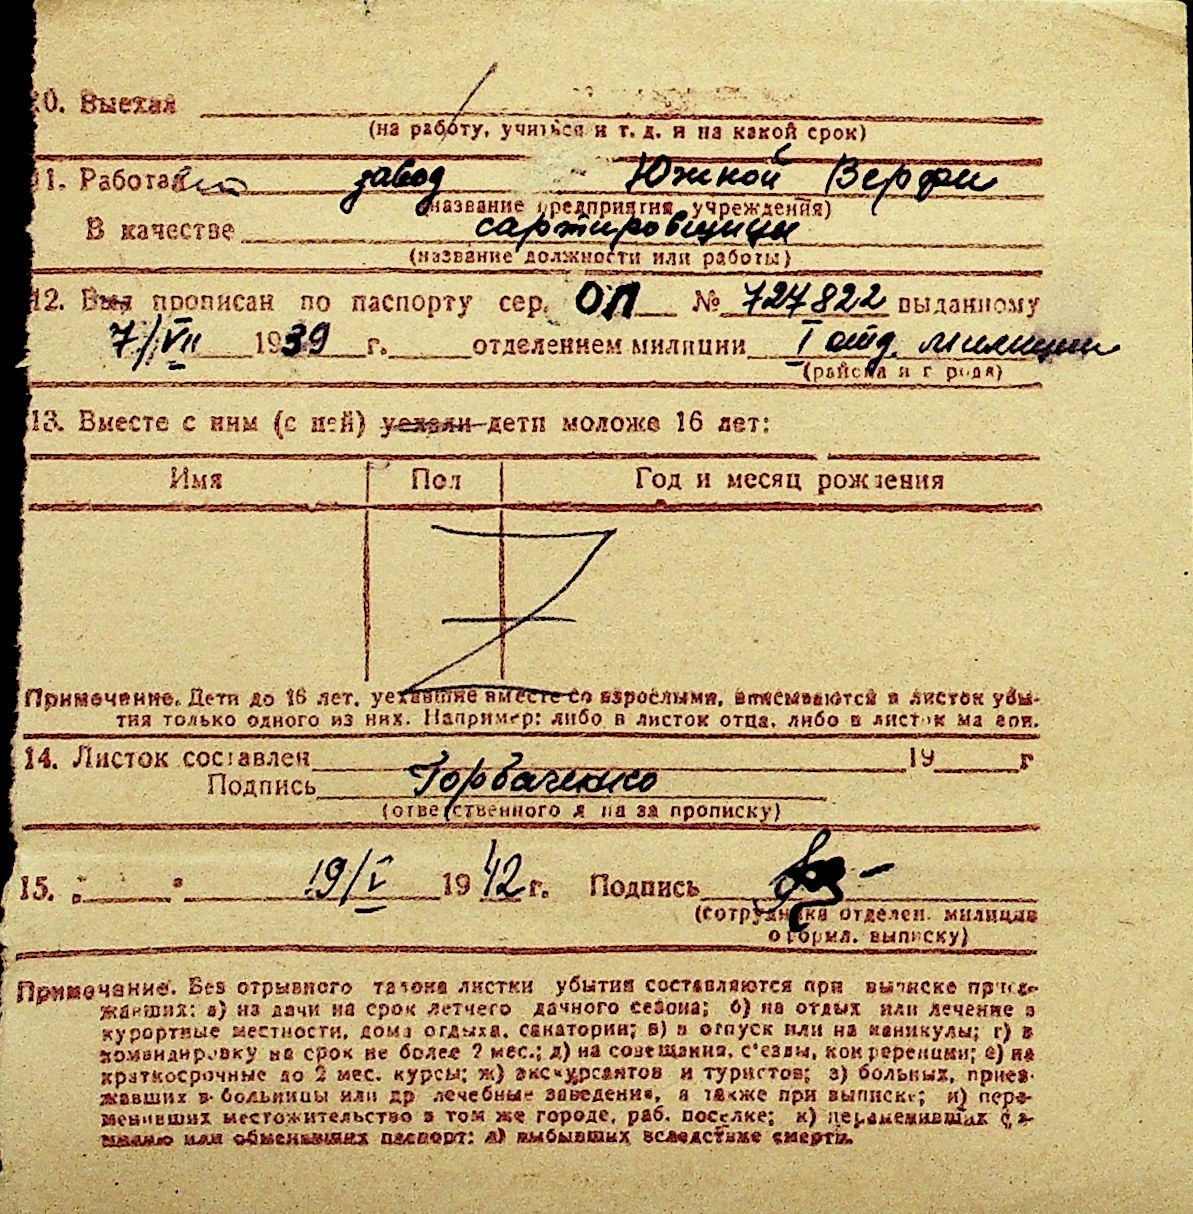 10. Выехал
(на работу, учиться и т. д. и на какой срок)
11. Работает завод Южной Верфи
(название предприятия, учреждения)
В качестве сартировщицы
(название должности или работы)
12. Был прописан по паспорту сер. ОЛ № 727822 выданному
7/VII 1939 г. отделением милиции I отд. милиции
(района и города)
13. Вместе с ним (с ней) уехали дети моложе 16 лет:
Имя Пол Год и месяц рождения
Примечание. Дети до 16 лет, уехавшие вместе со взрослыми, вписываются в листок убы-
тия только одного из них. Например: либо в листок отца, либо в листок матери.
14. Листок составлен 19 г
Подпись Горбаченко
(ответственного лица за прописку)
15. „ " 19/V 1942 г. Подпись
(сотрудника отделен. милиции
оформл. выписку)
Примечание. Без отрывного талона листки убытия составляются при выписке приез-
жавших: а) на дачи на срок летнего дачного сезона; б) на отдых или лечение в
курортные местности, дома отдыха, санатории; в) в отпуск или на каникулы; г) в
командировку на срок не более 2 мес.; д) на совещания, с'езды, конференции; е) на
краткосрочные до 2 мес. курсы; ж) экскурсантов и туристов; з) больных, приез-
жавших в больницы или др лечебные заведения, а также при выписке; и) пере-
менивших местожительство в том же городе, раб. поселке; к) переменивших фа-
милию или обменявших паспорт; л) выбывших вследствие смерти.